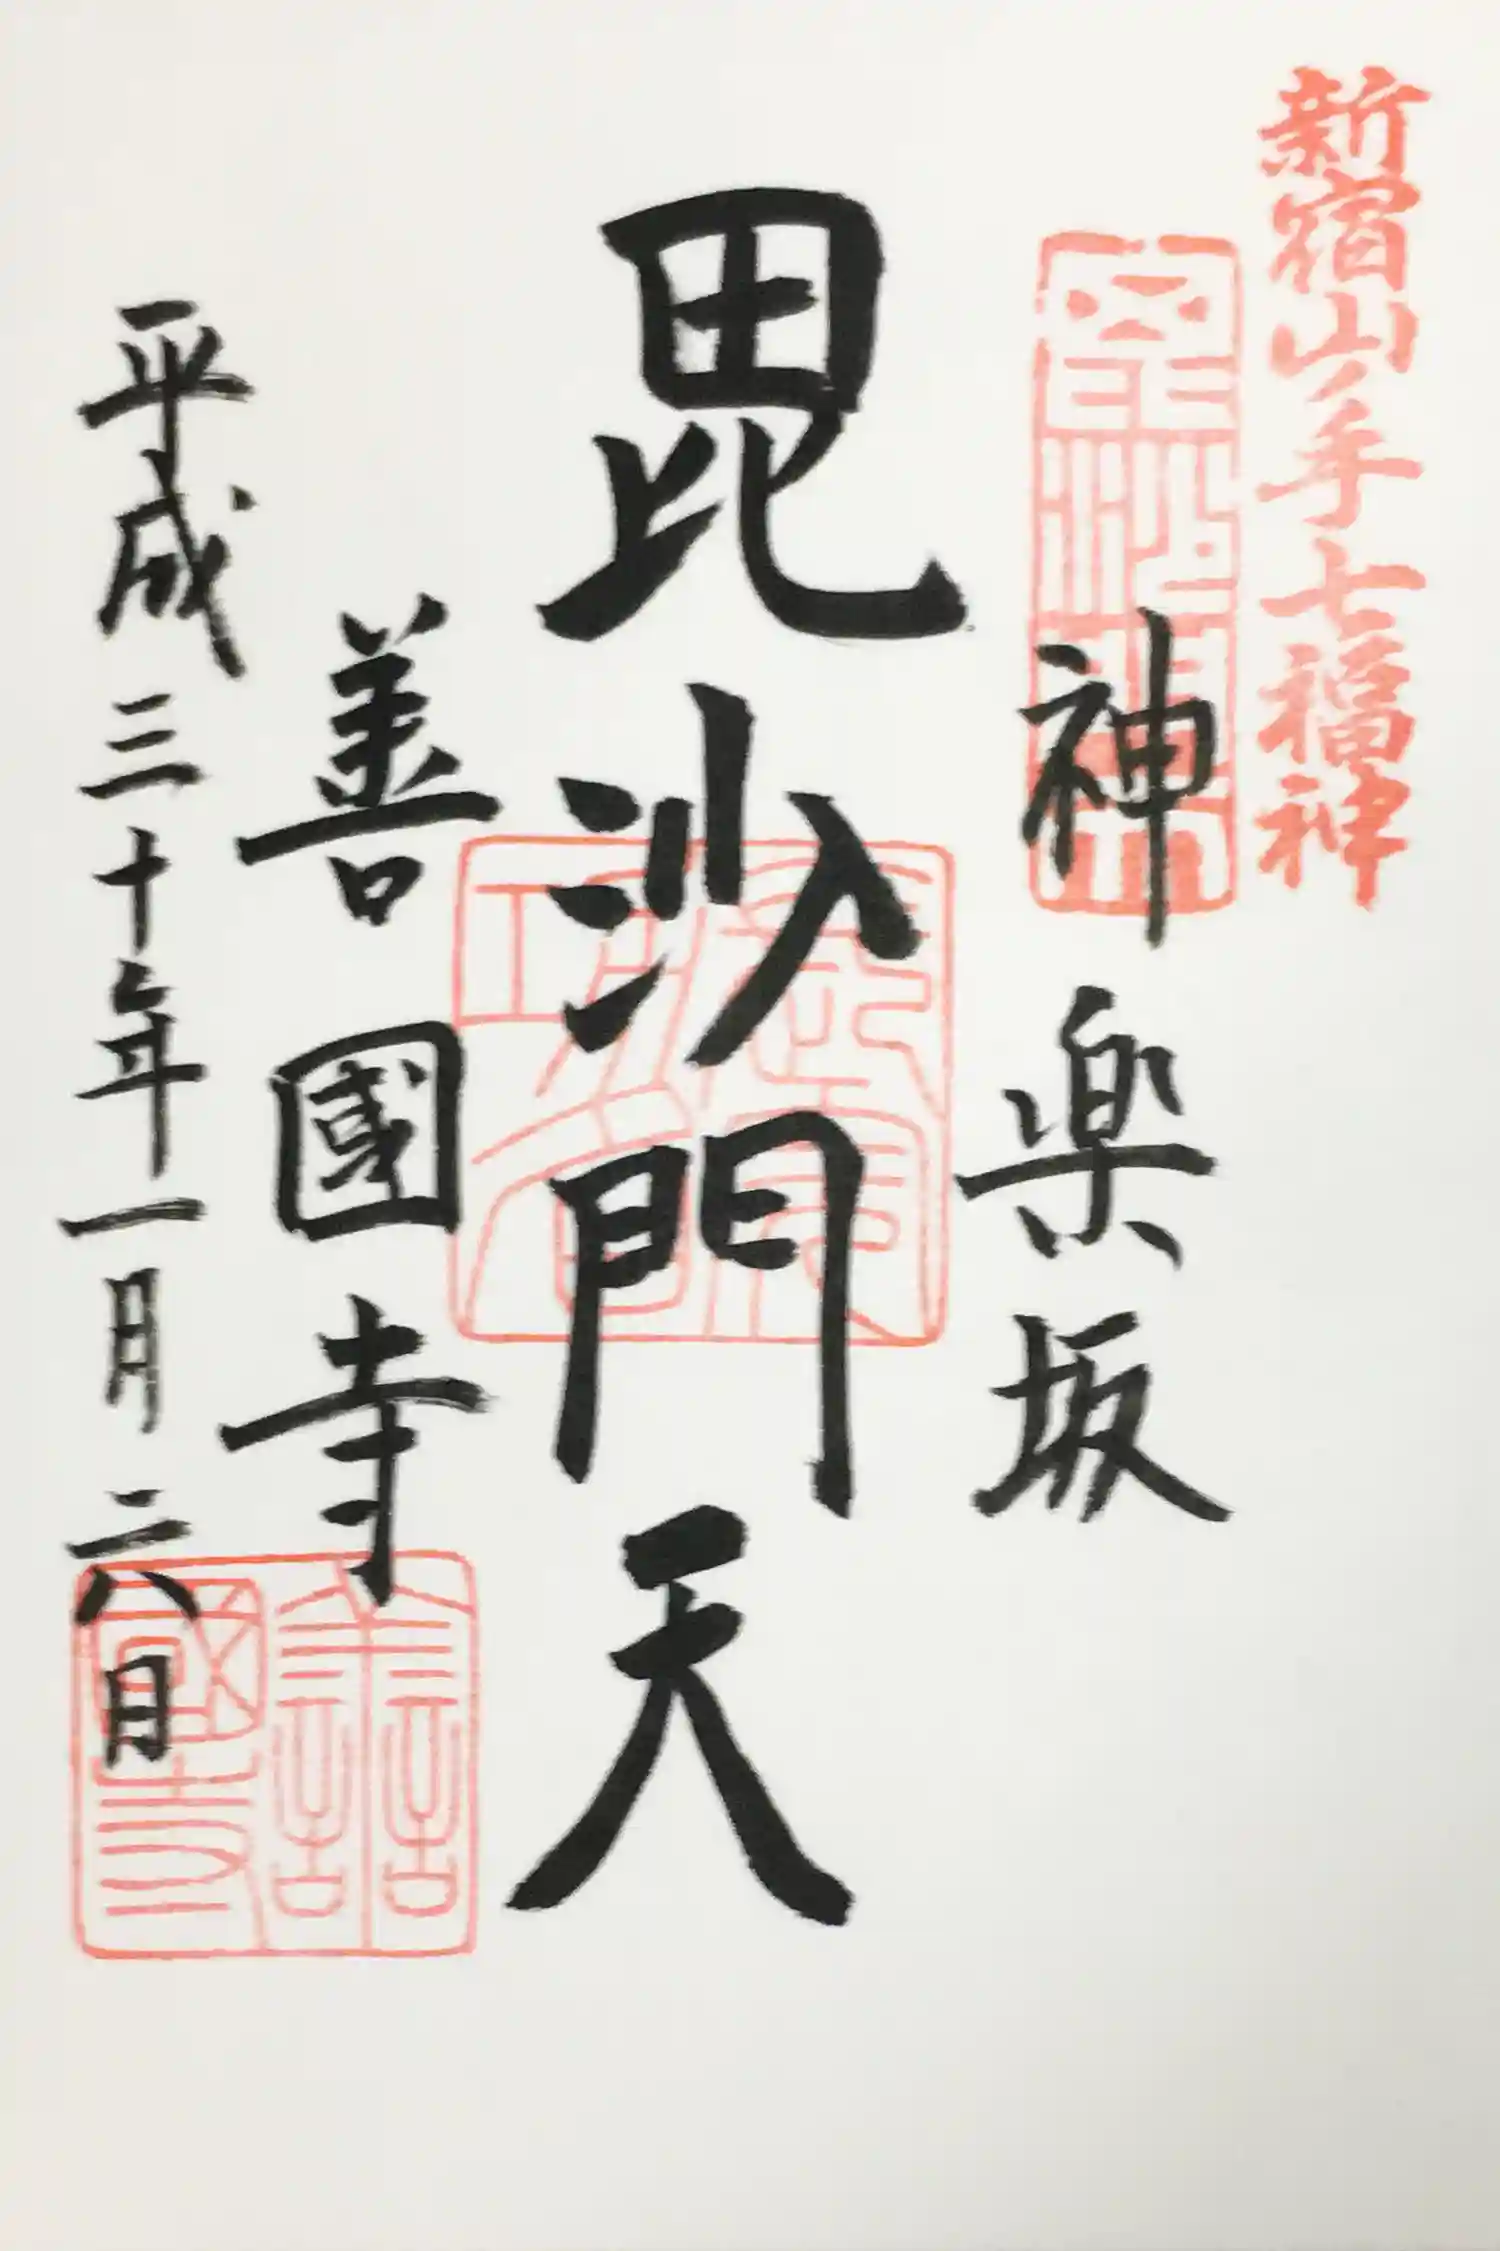 新宿山ノ手七福神
神楽坂
毘沙門天
善國寺
平成三十年一月六日
善國寺